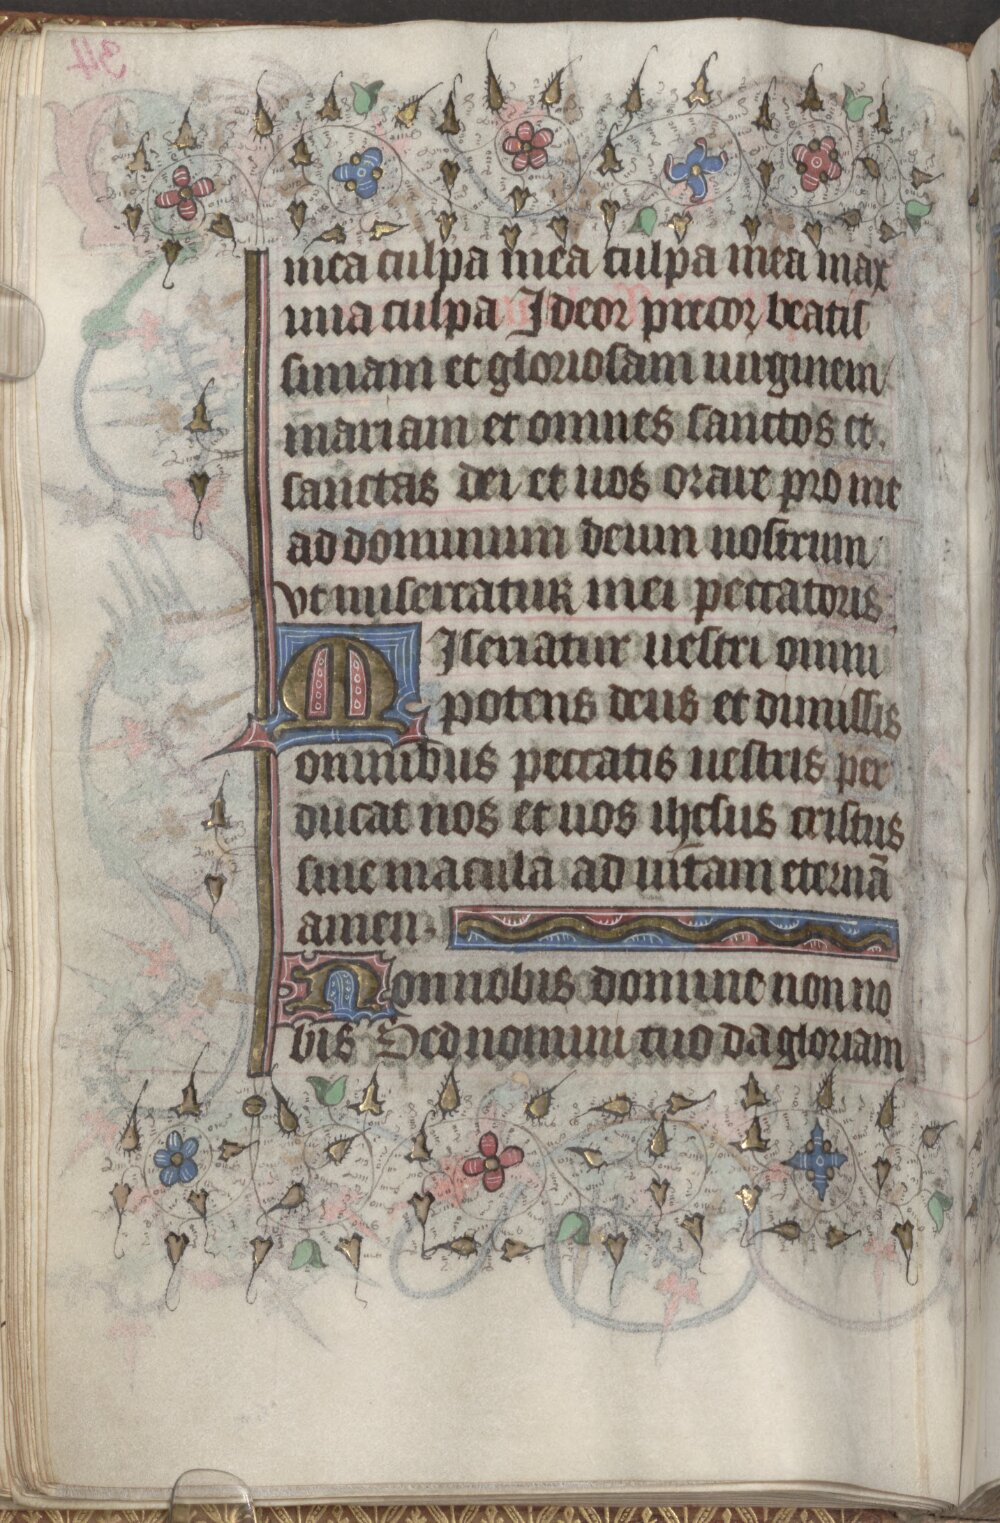 mea culpa mea culpa mea max
ima culpa Ideor precor beatis
simam et gloriosam uirginem
mariam et omnes sanctos et
sanctas dei et uos orare pro me
ad dominum deum nostrum
vt misereatur mei peccatoris
Miseriatur uestri omni
potens deus et dimissis
omnibus peccatis uestris per
ducat nos et uos ihesus cristus
sine macula ad uitam eternā
amen.
Non nobis domine non no
bis Sed nomini tuo da gloriam